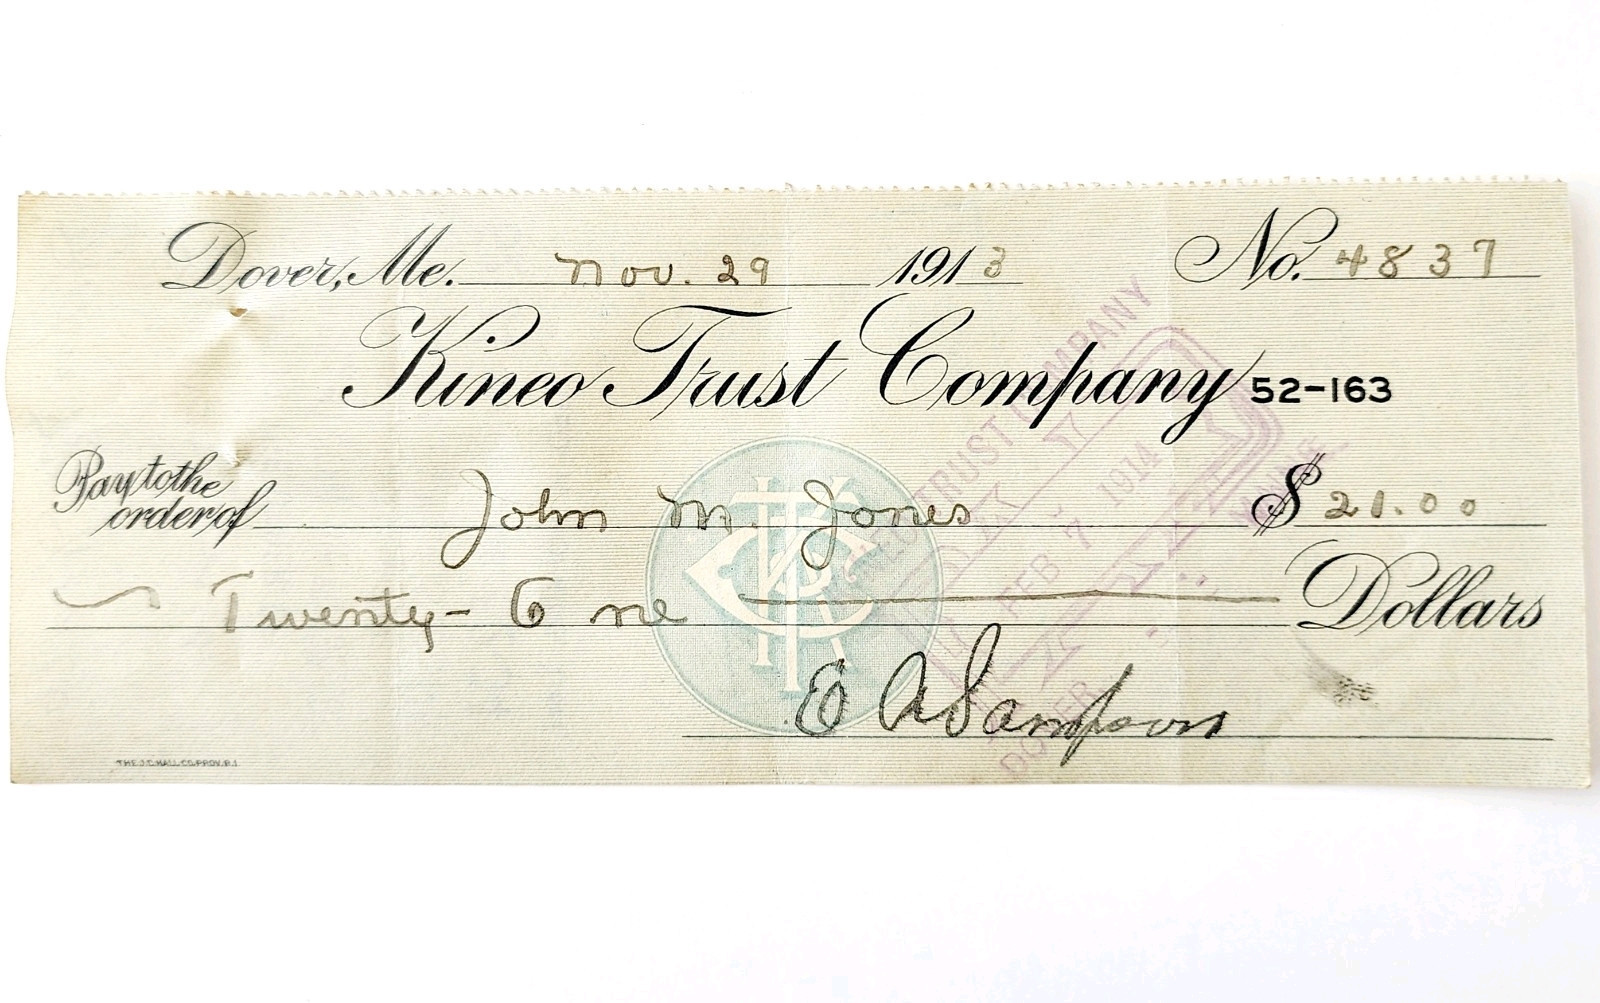 Dover, Me. Nov. 29 1913 No. 4837
Kineo Trust Company 52-163
Pay to the
order of John M. Jones $21.00
Twenty-One Dollars
E A Sampson
THE J.C. HALL CO. PROV. R.I.
TRUST COMPANY
FEB 7 1914
DOVER MAINE
KTC